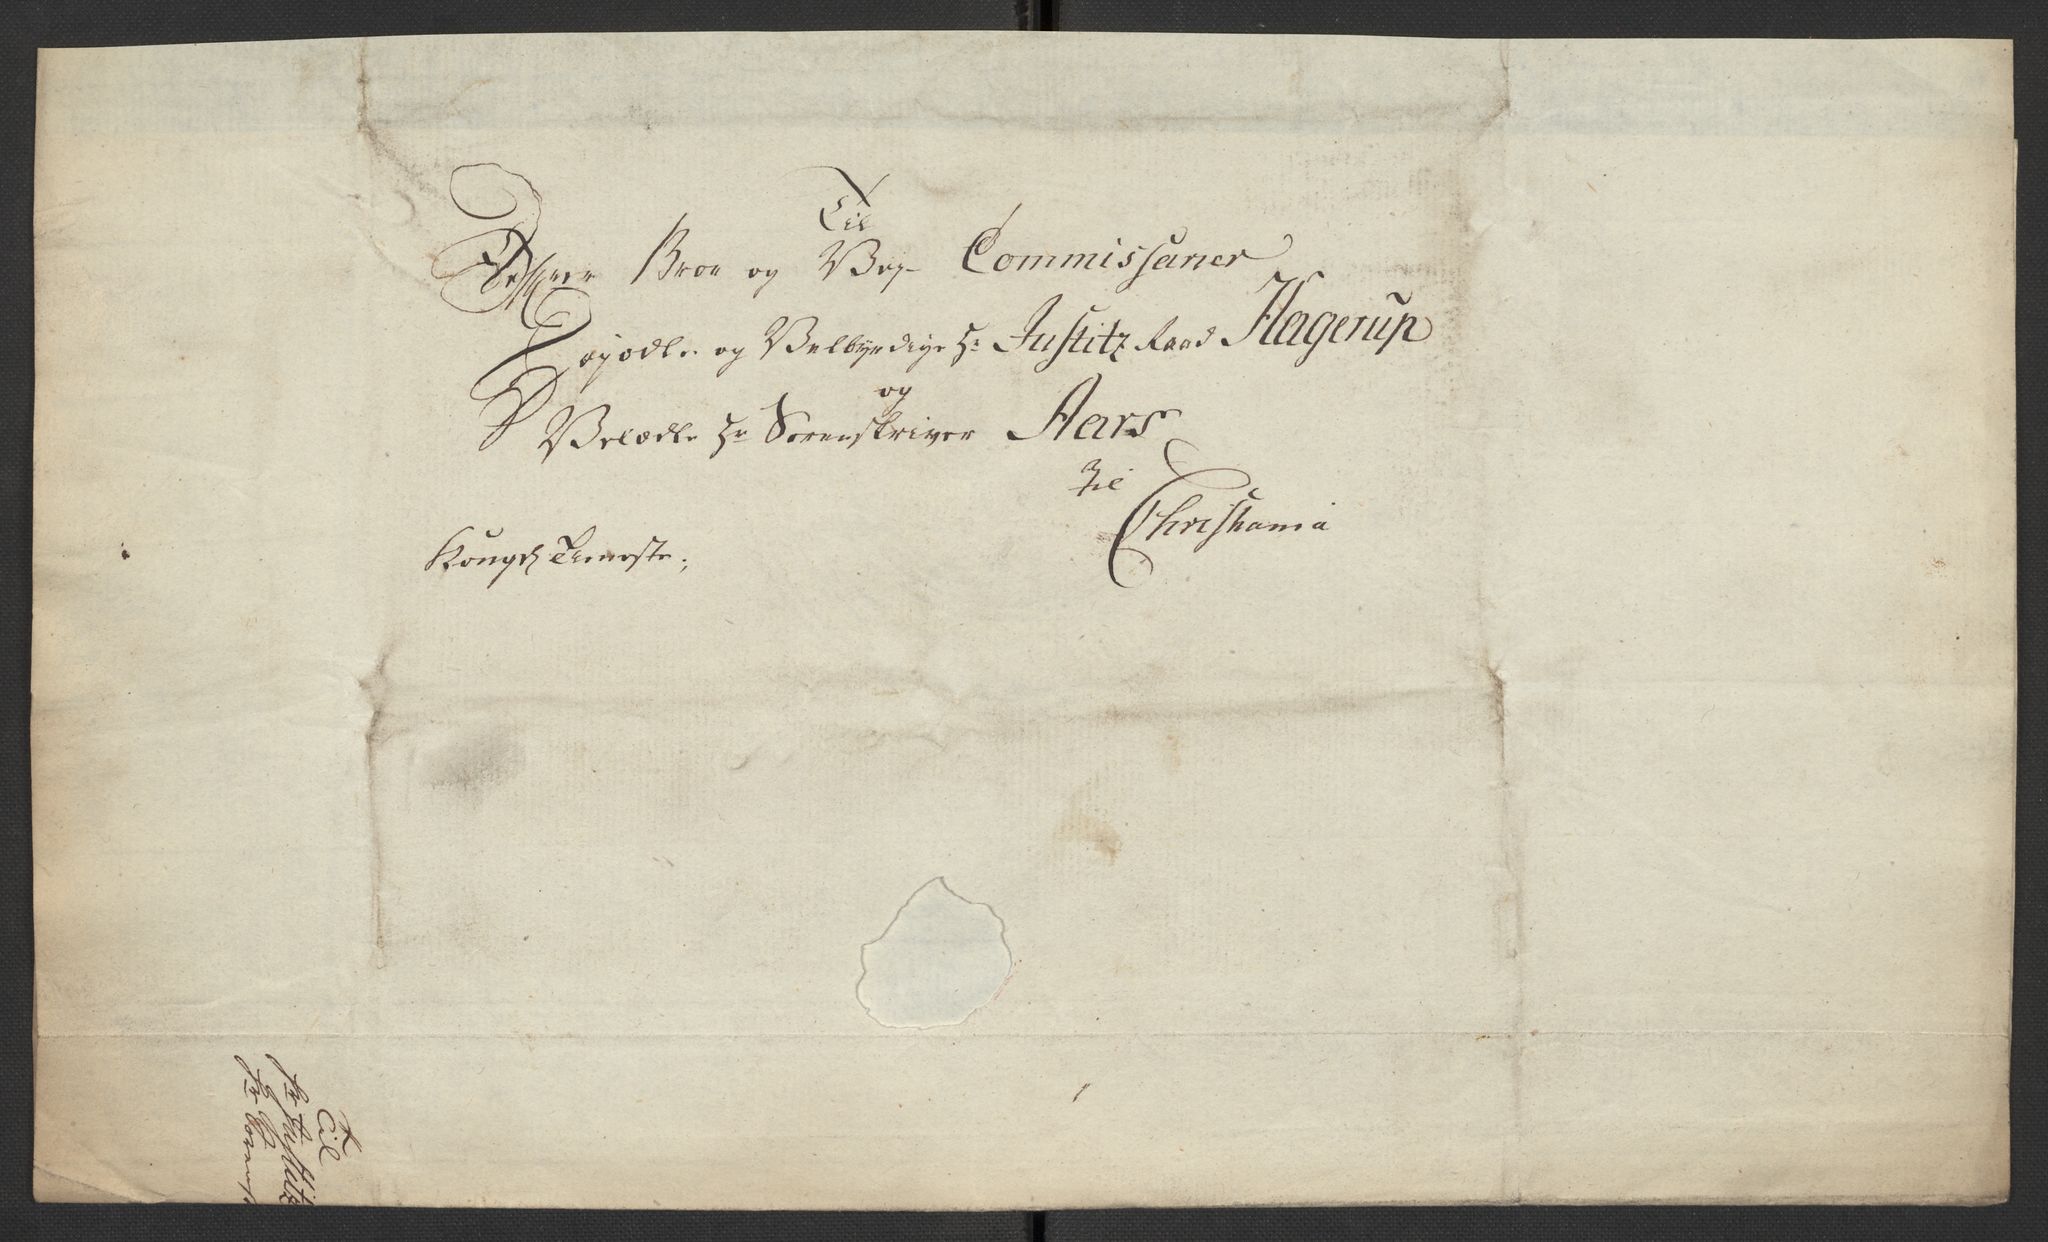 Til
Broe og Vey- Commissairer
Høyædle og Velbyrdige Hr Justitz Raad Hagerup
og
Velædle Hr Sorenskriver Aars
Til
Christiania
Kongel: Tieneste:
Til
Hr Justitz
Hr Sorensk